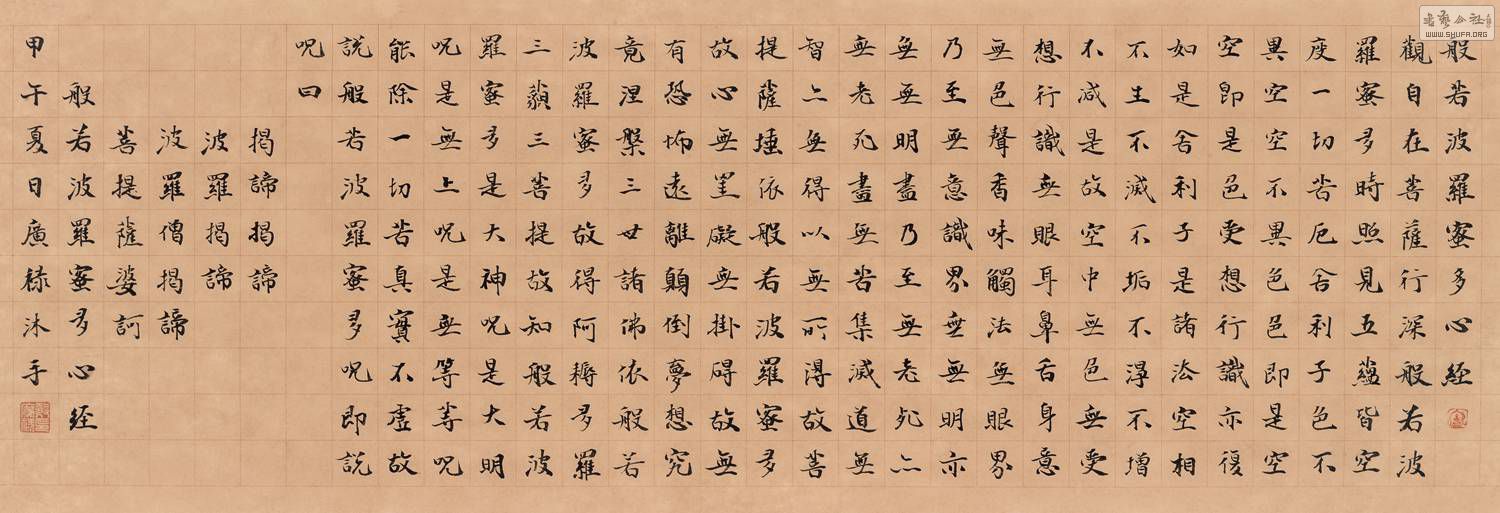 般若波羅蜜多心経
觀自在菩薩行深般若波
羅蜜多時照見五蘊皆空
度一切苦厄舍利子色不
異空空不異色色即是空
空即是色受想行識亦復
如是舍利子是諸法空相
不生不滅不垢不淨不增
不減是故空中無色無受
想行識無眼耳鼻舌身意
無色聲香味觸法無眼界
乃至無意識界無無明亦
無無明盡乃至無老死亦
無老死盡無苦集滅道無
智亦無得以無所得故菩
提薩埵依般若波羅蜜多
故心無罣礙無掛碍故無
有恐怖遠離顛倒夢想究
竟涅槃三世諸佛依般若
波羅蜜多故得阿耨多羅
三藐三菩提故知般若波
羅蜜多是大神呪是大明
呪是無上呪是無等等呪
能除一切苦真實不虛故
說般若波羅蜜多呪即說
呪曰
揭諦揭諦
波羅揭諦
波羅僧揭諦
菩提薩婆訶
般若波羅蜜多心経
甲午夏日廣祿沐手
WWW.SHUFA.ORG